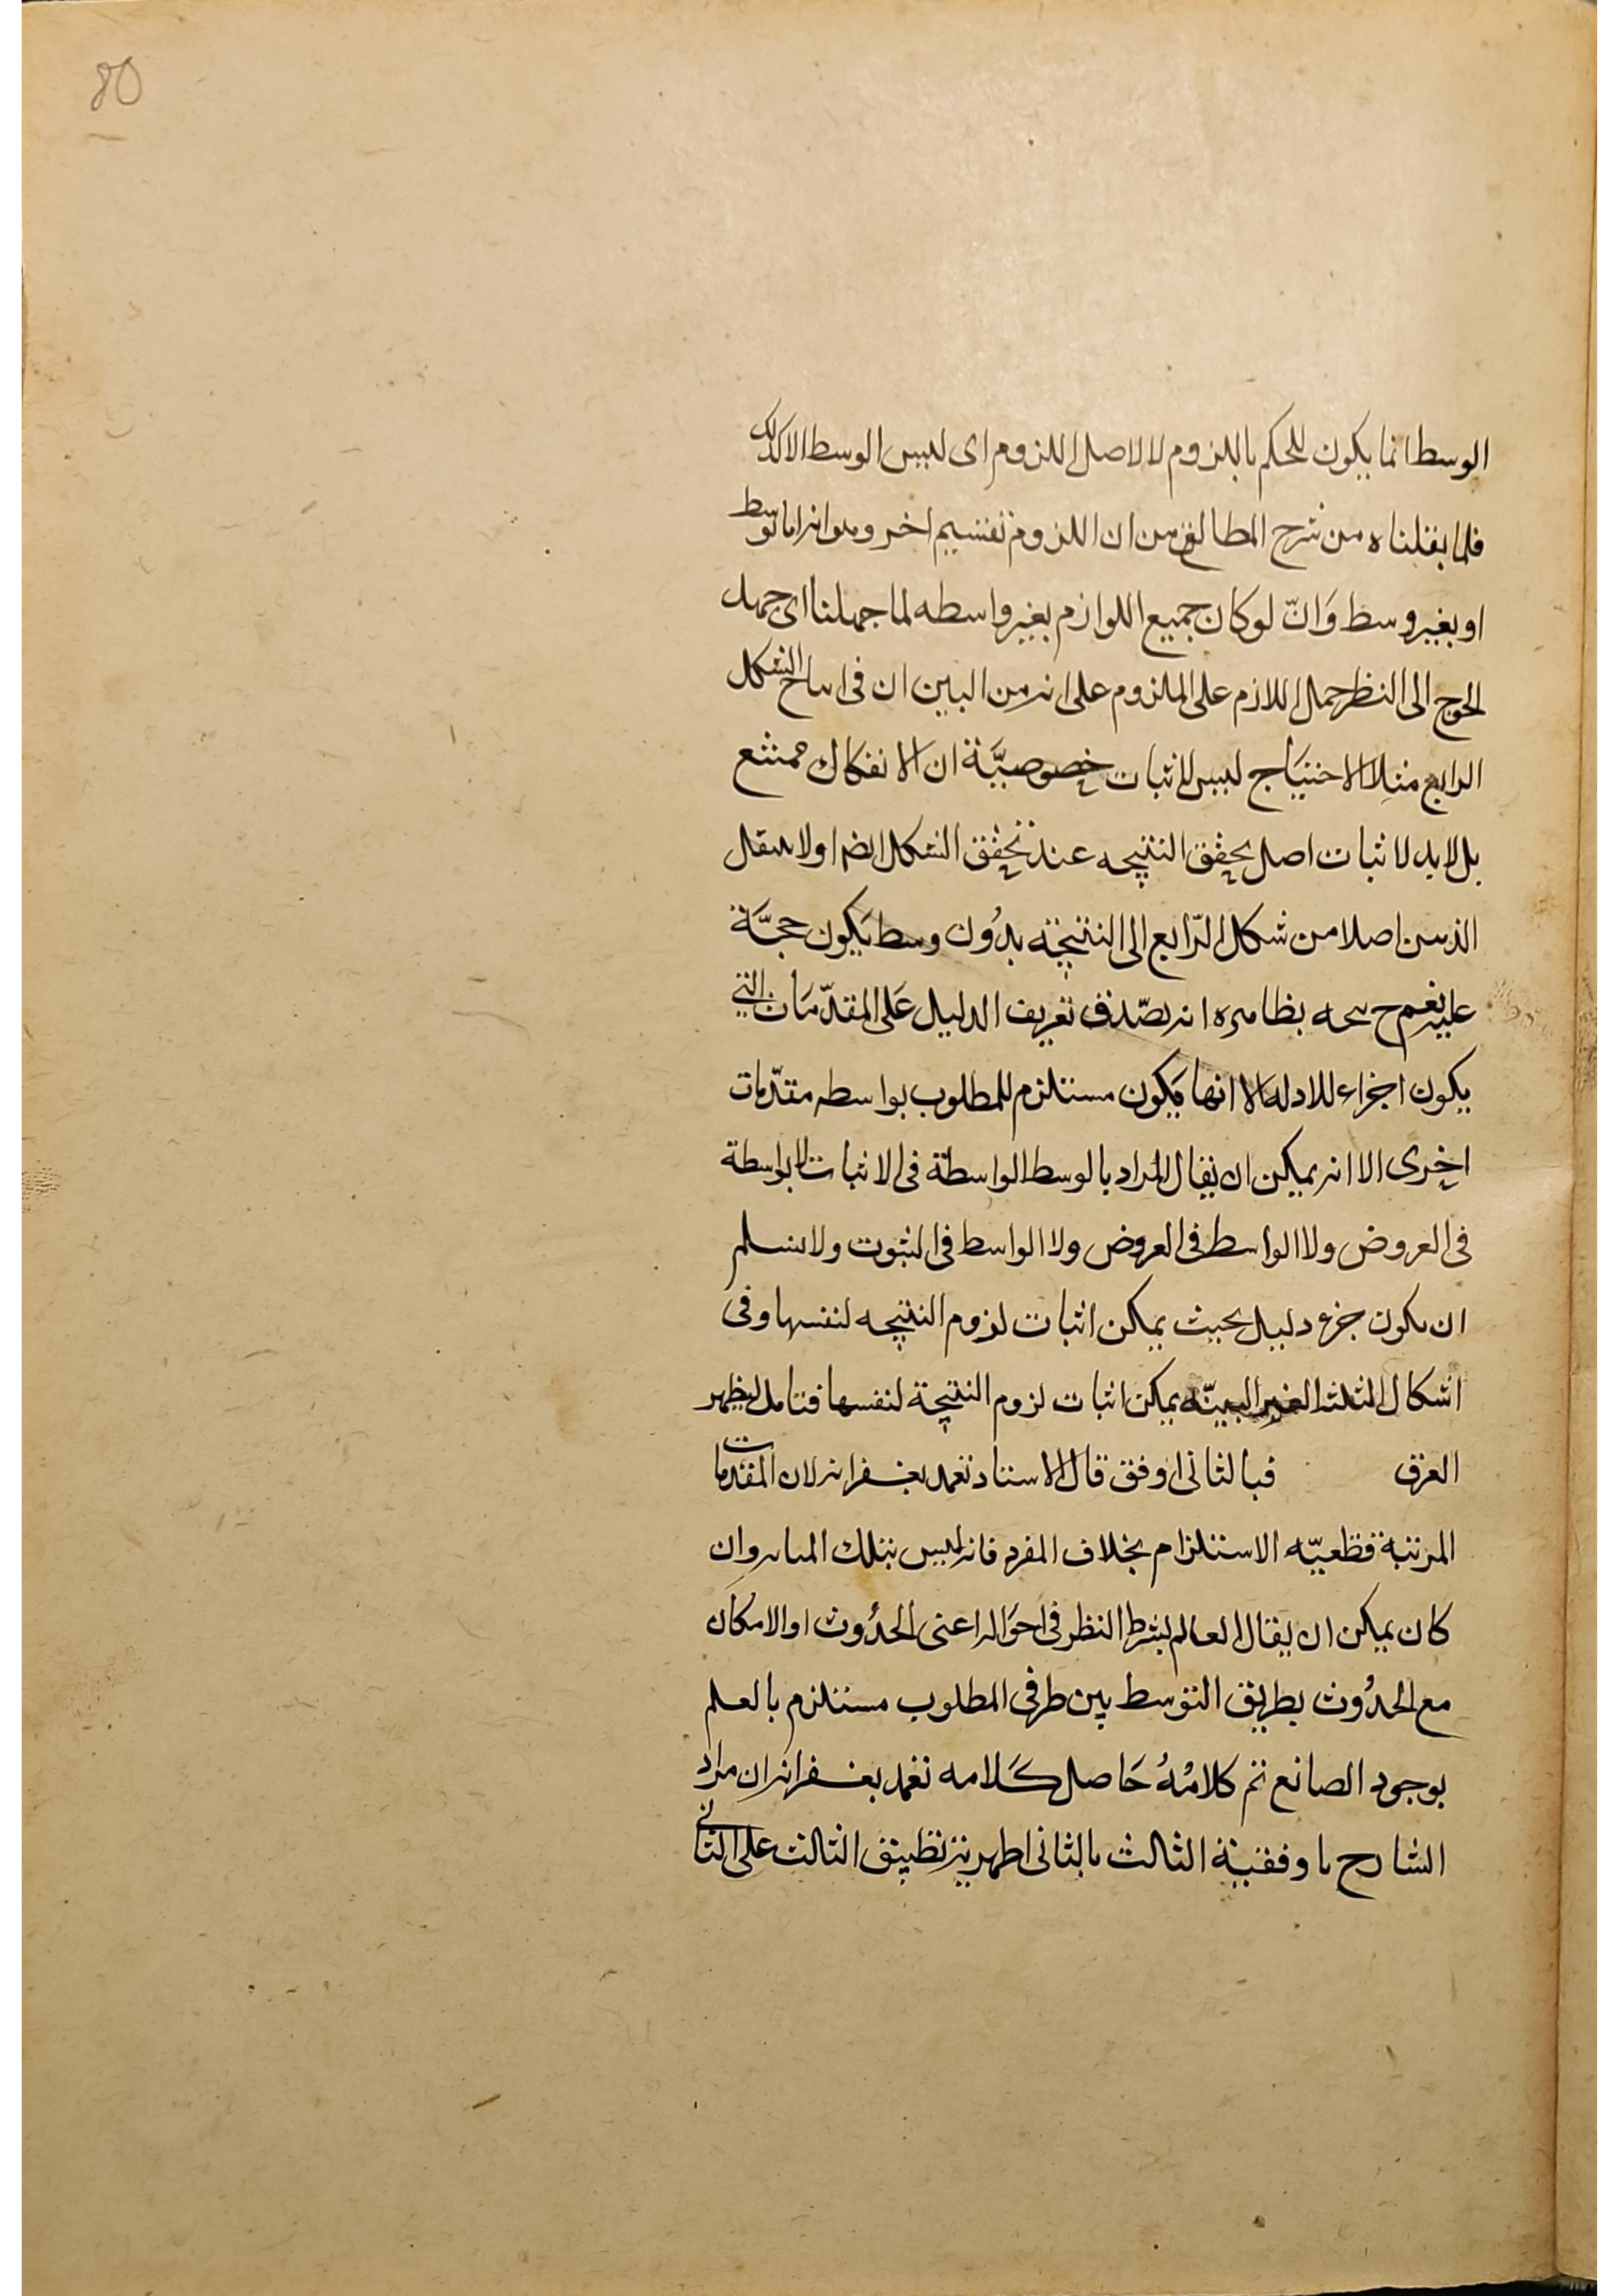 80
الوسط انما يكون للحكم باللزوم لا لاصل اللزوم اى ليس الوسط الا كذلك
فلما بقلناه من شرح المطالع من ان اللزوم تقسيم اخر وهو انه اما بوسط
او بغير وسط وَانّ لو كان جميع اللوازم بغير واسطه لما جهلنا اى جهل
الحوج الى النظر حمل اللازم على الملزوم على انه من البين ان فى الشكل
الرابع مثلا الاحتياج ليس لاثبات خصوصيَّة ان الانفكاك ممتنع
بل لا بد لاثبات اصل تحقق النتيجه عند تحقق الشكل ايضا ولا ينتقل
الذهن اصلا من شكل الرّابع الى النتيجة بدُون وسط يَكون حجَّة
عليه نعم ح بظاهره انه يصّدق تعريف الدليل عَلى المقدّمَات التى
يكون اجزاء للادله الا انها يكون مستلزم للمطلوب بواسطه مقدّمات
اخرى الا انه يمكن ان يقال المراد بالوسط الواسطة فى الاثبات لا بواسطة
فى العروض ولا الواسط فى العروض ولا الواسط فى الثبوت ولا نسلم
ان يكون جزء دليل بحيث يمكن اثبات لزوم النتيجه لنفسها وفى
اشكال الثلثه الغير البينّه يمكن اثبات لزوم النتيجة لنفسها فتامل ليظهر
الفرق فبالثانى اوفق قال الاستاد تغمد بغفرانه لان المقدمات
المرتبة قطعيّه الاستلزام بخلاف المفرد فانه ليس بتلك وان
كان يمكن ان يقال العالم بشرط النظر فى احوَاله اعنى الحدُوث او الامكان
مع الحدُوث بطريق التوسط بين طرفى المطلوب مستلزم بالعلم
بوجود الصانع تم كلامُهُ حَاصل كَلامه تغمد بغفرانه ان مراد
الشارح باوفقية الثالث بالثانى اظهرية تطبيق الثالث على الثانى